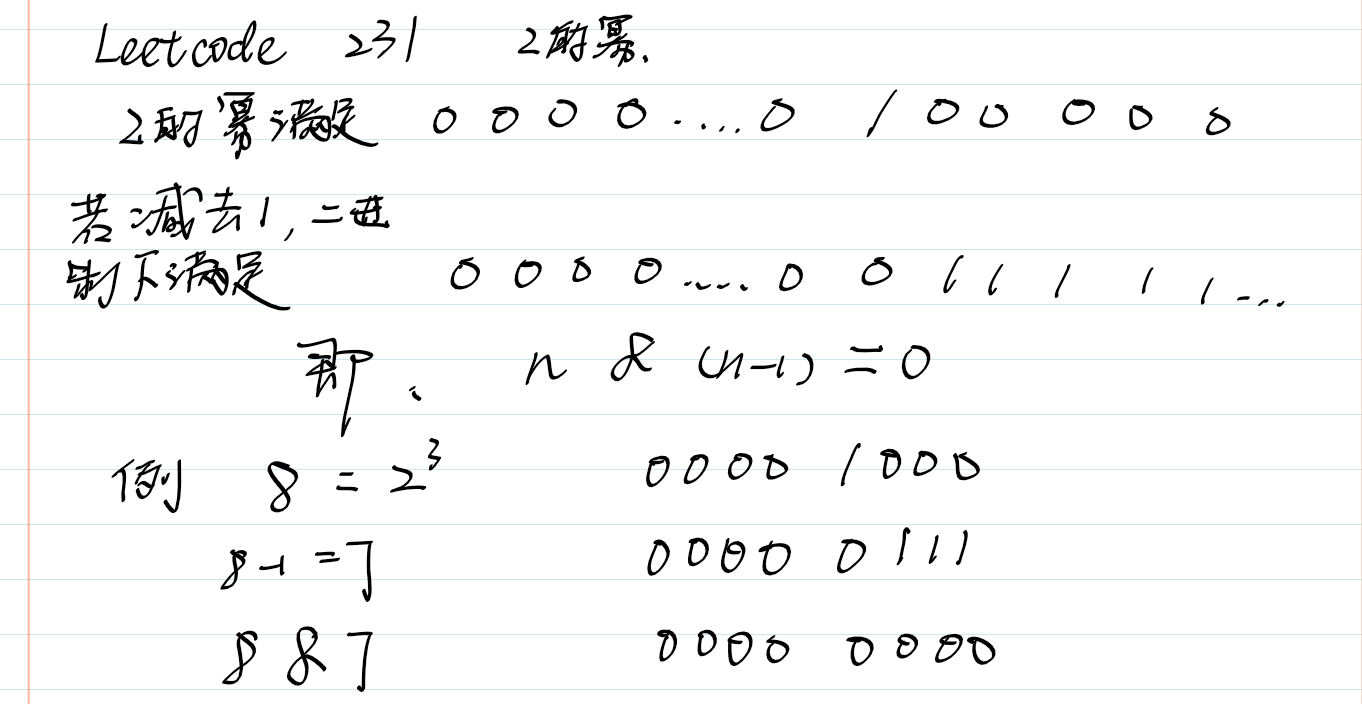 Leetcode 231 2的幂.
2的幂满足 0 0 0 0 ..... 0 1 0 0 0 0 0
若减去1, 二进
制下满足 0 0 0 0 ..... 0 0 1 1 1 1 1 ...
即、 n & (n-1) = 0
例 8 = 2³ 0000 1000
8-1 =7 0000 0111
8 & 7 0000 0000